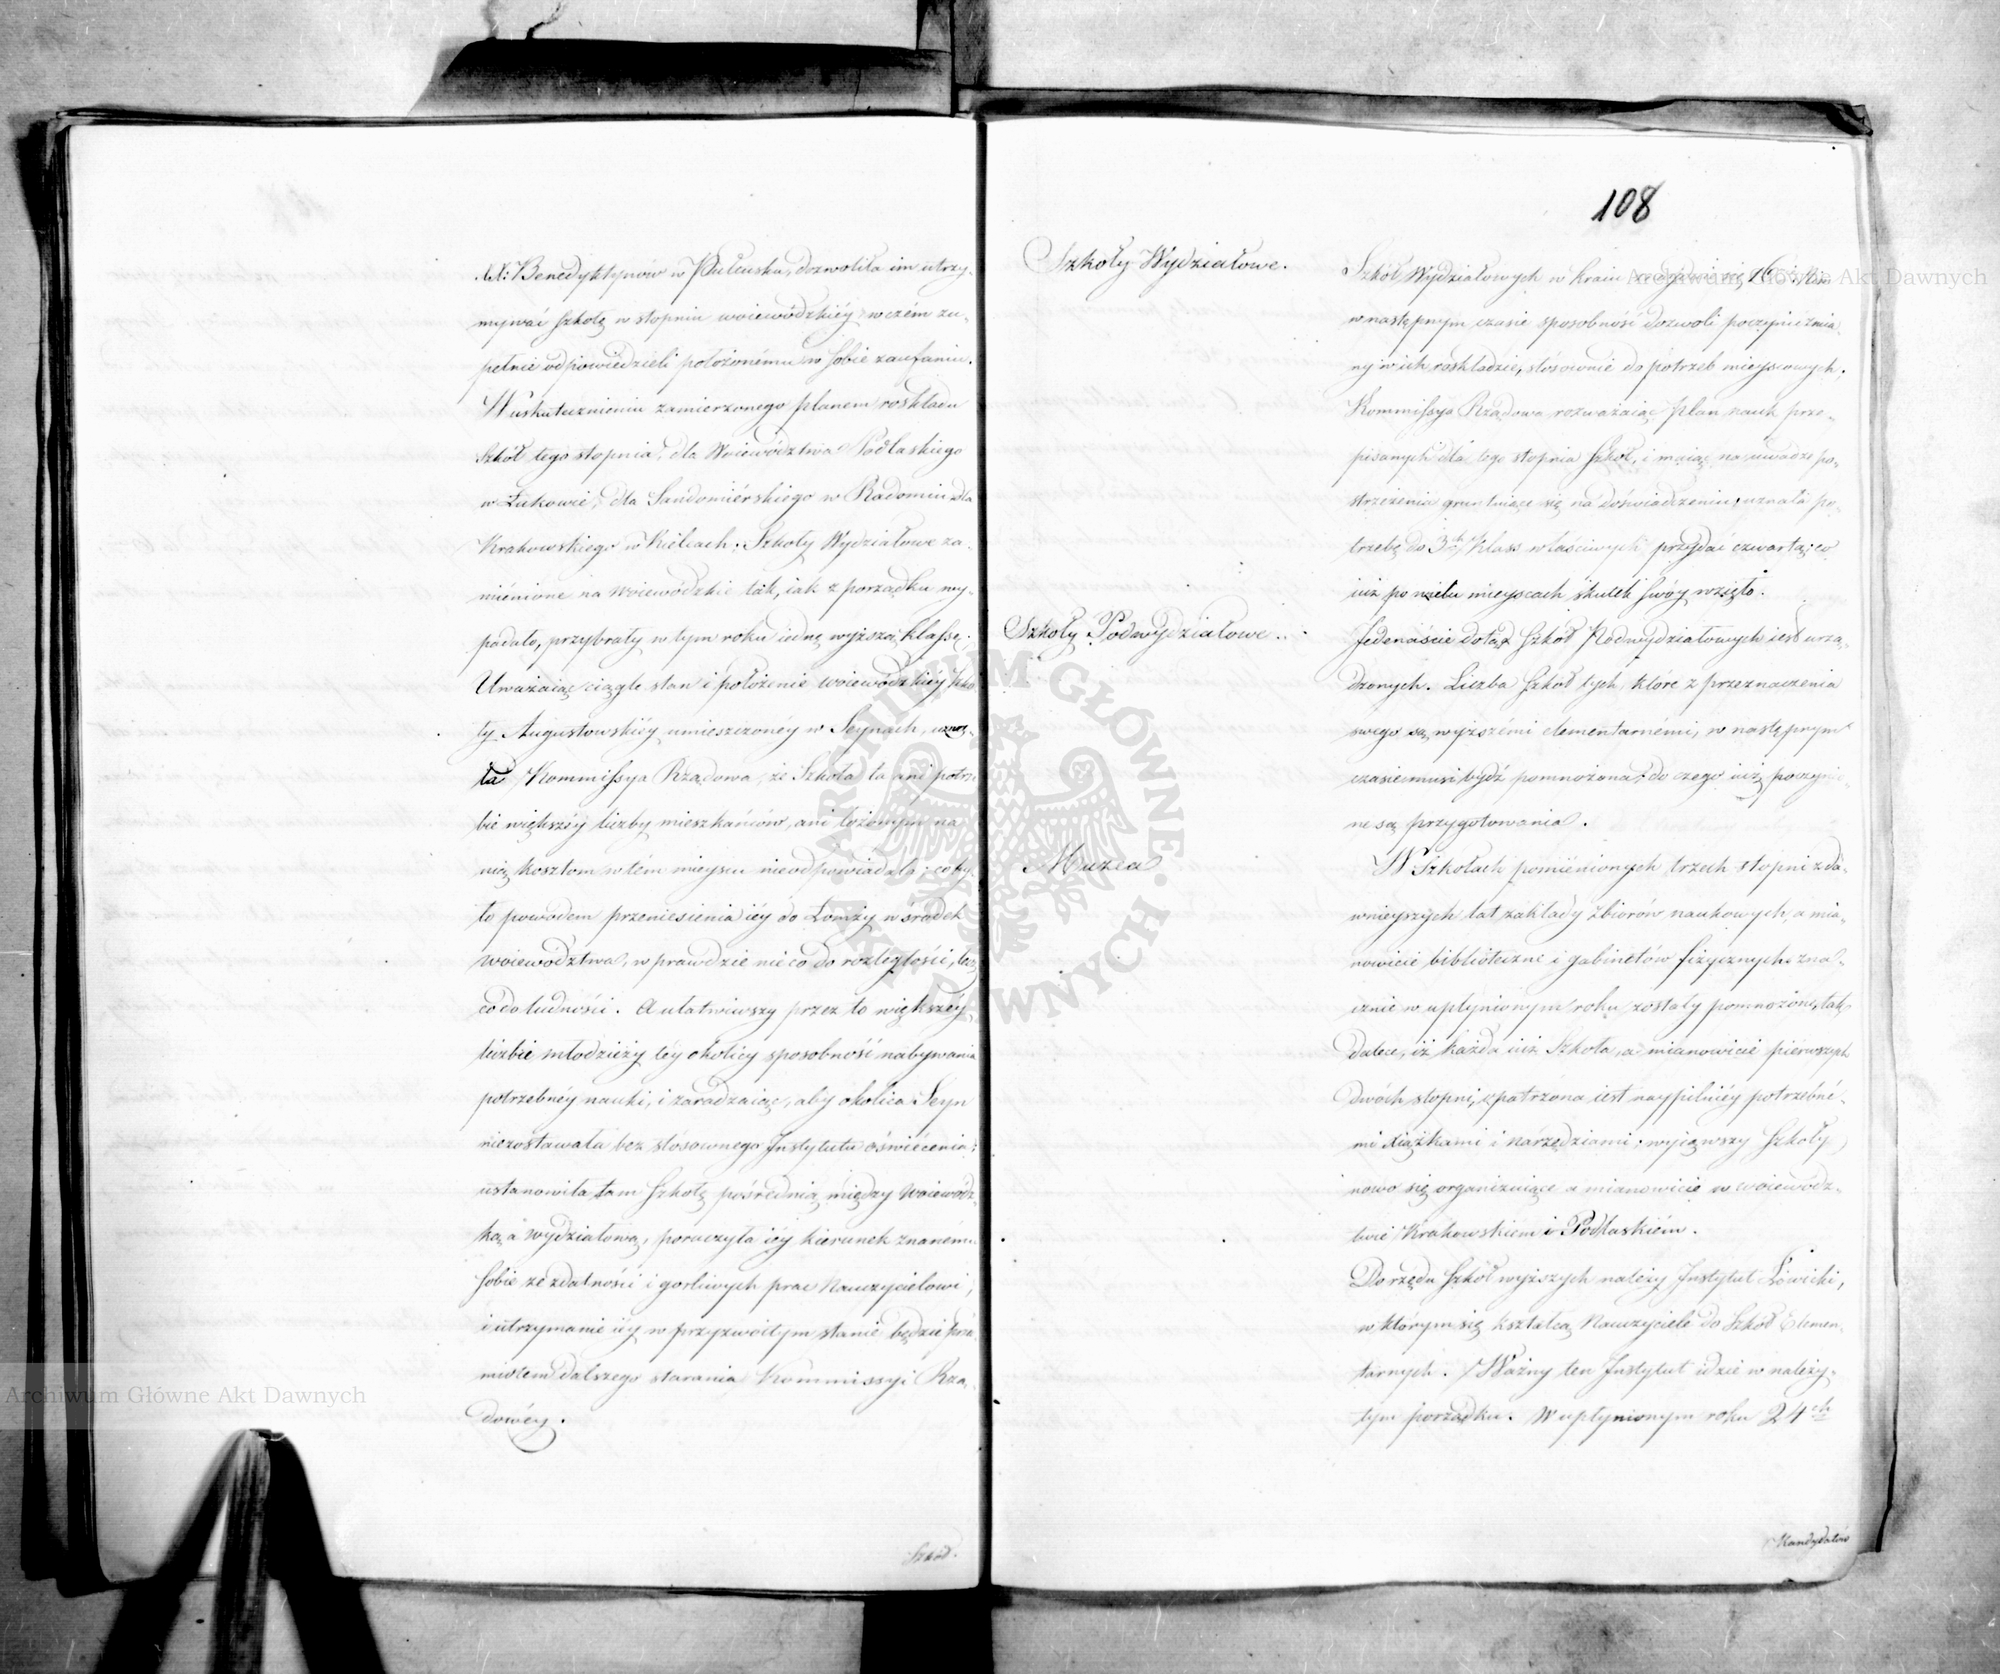 XX: Benedyktynów w Pułtusku, dozwoliła im utrzy-
mywać szkołę w stopniu woiewódzkiéy w czém zu-
pełnie odpowiedzieli położonému w sobie zaufaniu.
W uskutecznieniu zamierzonego planem roskładu
szkół tego stopnia, dla Woiewództwa Podlaskiego
w Łukowie, dla Sandomiérskiego w Radomiu dla
Krakowskiego w Kielcach; Szkoły Wydziałowe za-
mienione na Woiewódzkie tak, iak z porządku wy-
padało, przybrały w tym roku iednę wyższą klassę.
Uważaiąc ciągle stan i położenie woiewódzkiéy szko
ły Augustowskiéy umieszczonéy w Seynach, uzna-
ła Kommissya Rządowa, że Szkoła ta ani potrze
bie większéy liczby mieszkańców, ani łożonym na
nią kosztom w tém mieyscu nieodpowiadała; co by-
ło powodem przeniesienia iéy do Łomży w środek
woiewództwa, wprawdzie nie co do rozległości, lecz
co do ludności. A ułatwiwszy przez to większéy
liczbie młodzieży téy okolicy sposobność nabywania
potrzebnéy nauki, i zaradzaiąc, aby okolica Seyn
niezostawała bez stósownego Instytutu oświécenia;
ustanowiła tam Szkołę pośrednią między Woiewódz-
ką a wydziałową, poruczyła iéy kierunek znanému
sobie ze zdatności i gorliwych prac Nauczycielowi,
i utrzymanie iéy w przyzwoitym stanie będzie przed
miotem dalszego starania Kommissyi Rzą-
dowéy.
Szkół.
108
Szkoły Wydziałowe.
Szkół Wydziałowych w kraiu znayduie się 16.
w następnym czasie sposobność dozwoli poczynić zmia-
ny w ich roskładzie, stósownie do potrzeb mieyscowych.
Kommissya Rządowa rozważaiąc plan nauk prze-
pisanych dla tego stopnia Szkół, i maiąc na uwadze po-
strzeżenia gruntuiące się na doświadczeniu, uznała po-
trzebę do 3ch Klass właściwych przydać czwartą; co
iuż po wielu mieyscach skutek swóy wzięło.
Szkoły Podwydziałowe.
Jedenaście dotąd Szkół Podwydziałowych iest urzą-
dzonych. Liczba Szkół tych, które z przeznaczenia
swego są wyższémi elementarnémi, w następnym
czasie musi bydź pomnożona do czego iuż poczynio-
ne są przygotowania.
Muzea
W Szkołach pomienionych trzech stopni z da-
wnieyszych lat zakłady zbiorów naukowych, a mia-
nowicie biblioteczne i gabinetów fizycznych zna-
cznie w upłynionym roku zostały pomnożone, tak
dalece, iż każda iuż Szkoła, a mianowicie pierwszych
dwóch stopni, opatrzona iest naypilniéy potrzebné-
mi xiążkami i narzędziami; wyiąwszy Szkoły
nowo się organizuiące a mianowicie w woiewódz-
twie Krakowskiem i Podlaskiém.
Do rzędu Szkół wyższych należy Instytut Łowicki,
w którym się kształcą Nauczyciele do Szkół Elemen-
tarnych. Ważny ten Instytut idzie w należy-
tym porządku. W upłynionym roku 24ch
Kandydatów
Archiwum Główne Akt Dawnych
Archiwum Główne Akt Dawnych
ARCHIWUM GŁÓWNE AKT DAWNYCH